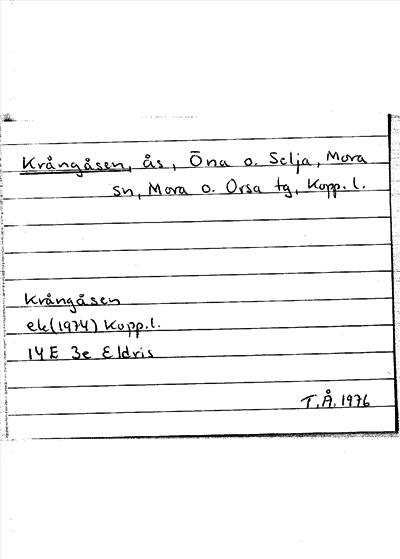 Krångåsen, ås, Öna o. Selja, Mora
sn, Mora o. Orsa tg, Kopp. l.
Krångåsen
ek(1974) Kopp.l.
14E 3e Eldris
T.Å. 1976